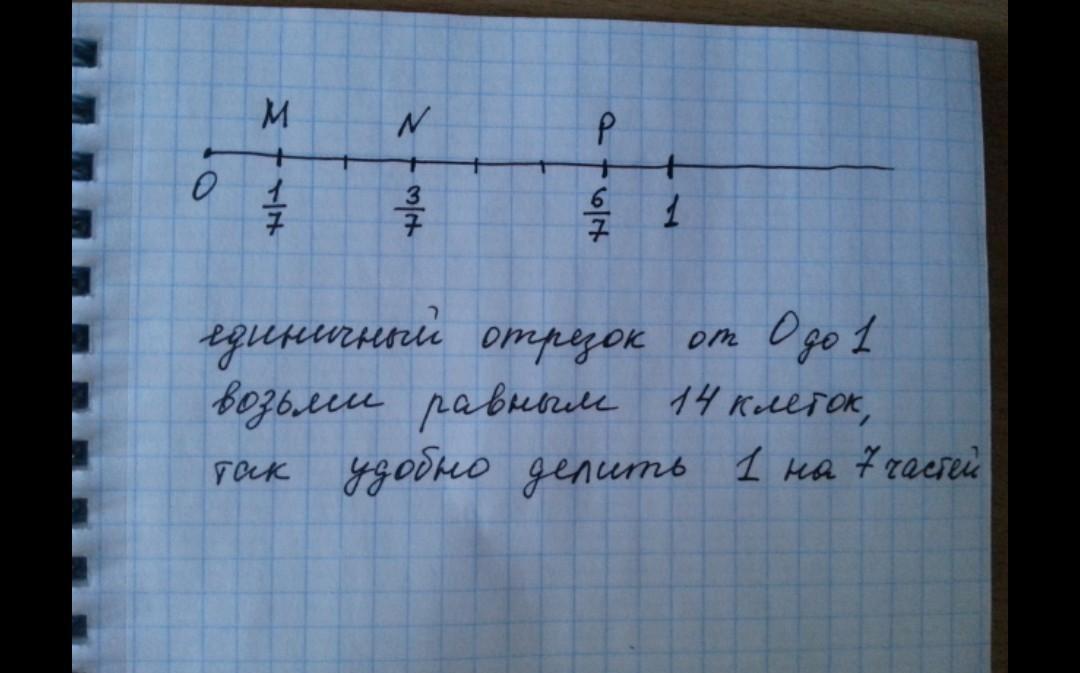 M N P
0 1/7 3/7 6/7 1
единичный отрезок от 0 до 1
возьми равным 14 клеток,
так удобно делить 1 на 7 частей